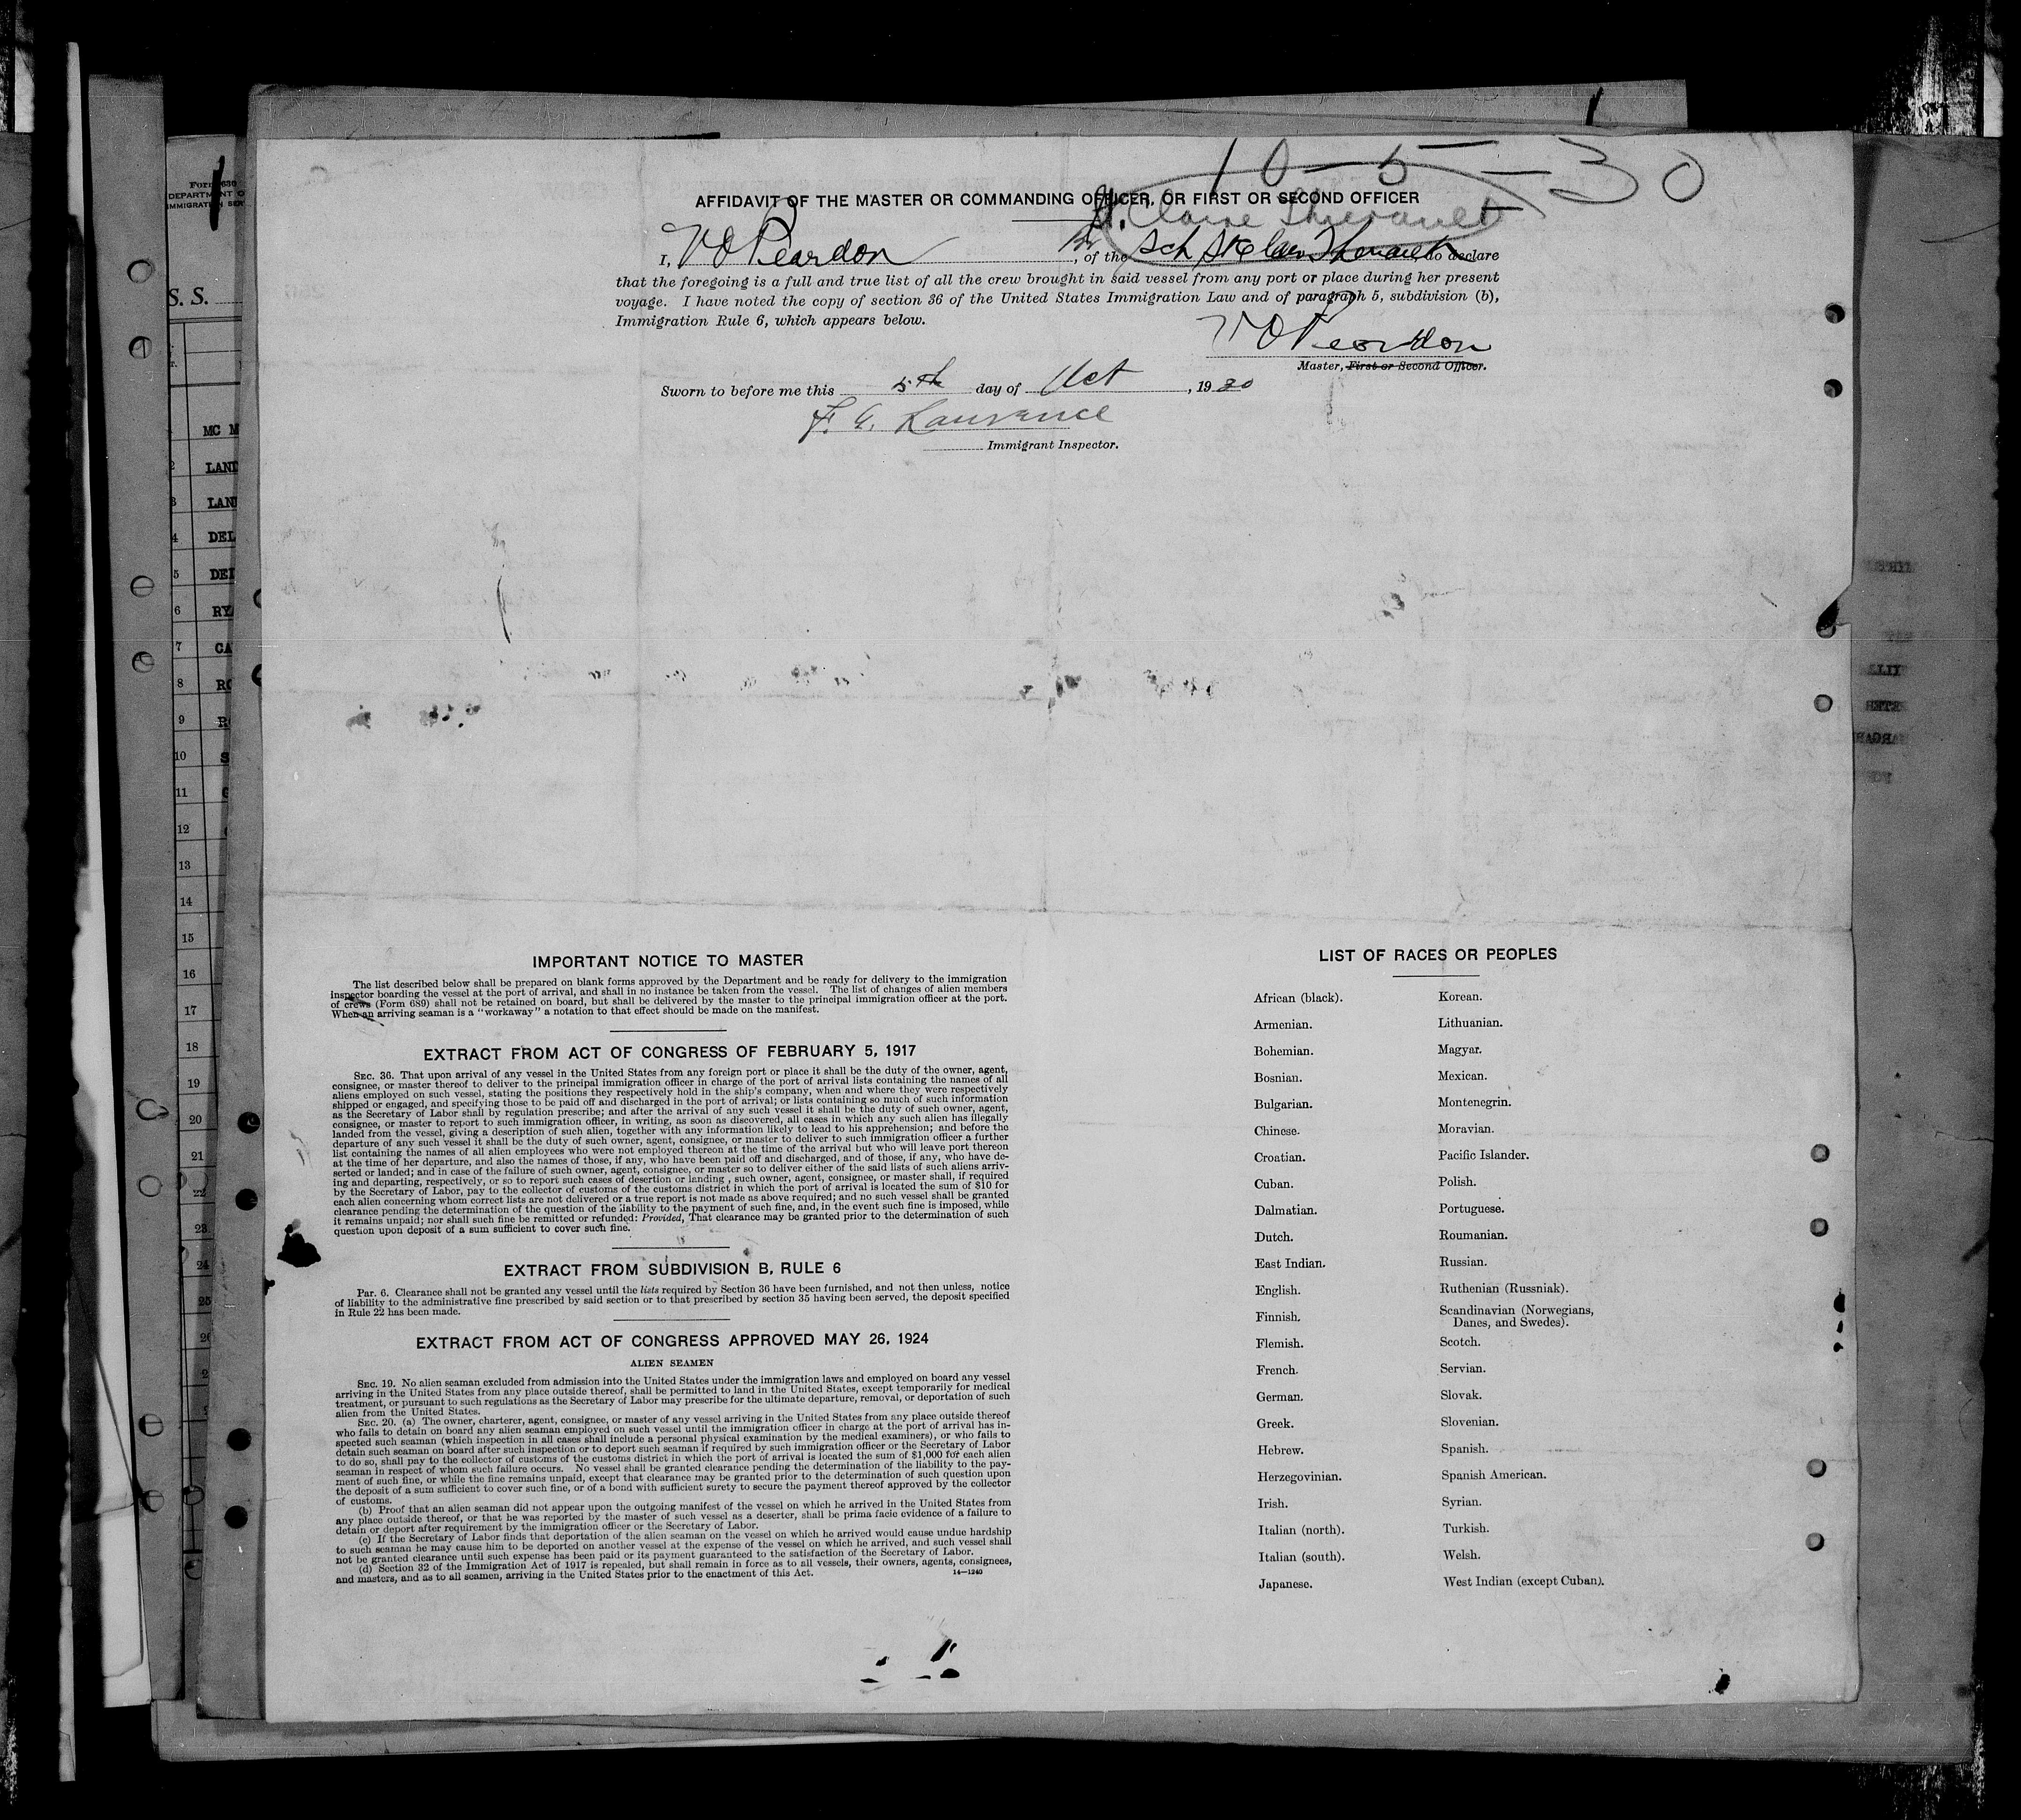 10-5-30
AFFIDAVIT OF THE MASTER OR COMMANDING OFFICER, OR FIRST OR SECOND OFFICER
St. Claire Theriault
I, V O Peardon, of the Br Sch St Clair Theriault do declare
that the foregoing is a full and true list of all the crew brought in said vessel from any port or place during her present
voyage. I have noted the copy of section 36 of the United States Immigration Law and of paragraph 5, subdivision (b),
Immigration Rule 6, which appears below.
V O Peardon
Master, First or Second Officer.
Sworn to before me this 5th day of Oct, 1930
F. A. Laurence
Immigrant Inspector.
Form 680
DEPARTMENT O
IMMIGRATION SER
S. S.
MC M
2 LAND
3 LAN
4 DEL
5 DEL
6 RY
7 CA
8 RO
9 R
10 S
11 G
12
13
14
15
16
17
18
19
20
21
22
23
24
25
26
IMPORTANT NOTICE TO MASTER
The list described below shall be prepared on blank forms approved by the Department and be ready for delivery to the immigration
inspector boarding the vessel at the port of arrival, and shall in no instance be taken from the vessel. The list of changes of alien members
of crews (Form 689) shall not be retained on board, but shall be delivered by the master to the principal immigration officer at the port.
When an arriving seaman is a "workaway" a notation to that effect should be made on the manifest.
EXTRACT FROM ACT OF CONGRESS OF FEBRUARY 5, 1917
SEC. 36. That upon arrival of any vessel in the United States from any foreign port or place it shall be the duty of the owner, agent,
consignee, or master thereof to deliver to the principal immigration officer in charge of the port of arrival lists containing the names of all
aliens employed on such vessel, stating the positions they respectively hold in the ship's company, when and where they were respectively
shipped or engaged, and specifying those to be paid off and discharged in the port of arrival; or lists containing so much of such information
as the Secretary of Labor shall by regulation prescribe; and after the arrival of any such vessel it shall be the duty of such owner, agent,
consignee, or master to report to such immigration officer, in writing, as soon as discovered, all cases in which any such alien has illegally
landed from the vessel, giving a description of such alien, together with any information likely to lead to his apprehension; and before the
departure of any such vessel it shall be the duty of such owner, agent, consignee, or master to deliver to such immigration officer a further
list containing the names of all alien employees who were not employed thereon at the time of the arrival but who will leave port thereon
at the time of her departure, and also the names of those, if any, who have been paid off and discharged, and of those, if any, who have de-
serted or landed; and in case of the failure of such owner, agent, consignee, or master so to deliver either of the said lists of such aliens arriv-
ing and departing, respectively, or so to report such cases of desertion or landing, such owner, agent, consignee, or master shall, if required
by the Secretary of Labor, pay to the collector of customs of the customs district in which the port of arrival is located the sum of $10 for
each alien concerning whom correct lists are not delivered or a true report is not made as above required; and no such vessel shall be granted
clearance pending the determination of the question of the liability to the payment of such fine, and, in the event such fine is imposed, while
it remains unpaid; nor shall such fine be remitted or refunded: Provided, That clearance may be granted prior to the determination of such
question upon deposit of a sum sufficient to cover such fine.
EXTRACT FROM SUBDIVISION B, RULE 6
Par. 6. Clearance shall not be granted any vessel until the lists required by Section 36 have been furnished, and not then unless, notice
of liability to the administrative fine prescribed by said section or to that prescribed by section 35 having been served, the deposit specified
in Rule 22 has been made.
EXTRACT FROM ACT OF CONGRESS APPROVED MAY 26, 1924
ALIEN SEAMEN
SEC. 19. No alien seaman excluded from admission into the United States under the immigration laws and employed on board any vessel
arriving in the United States from any place outside thereof, shall be permitted to land in the United States, except temporarily for medical
treatment, or pursuant to such regulations as the Secretary of Labor may prescribe for the ultimate departure, removal, or deportation of such
alien from the United States.
SEC. 20. (a) The owner, charterer, agent, consignee, or master of any vessel arriving in the United States from any place outside thereof
who fails to detain on board any alien seaman employed on such vessel until the immigration officer in charge at the port of arrival has in-
spected such seaman (which inspection in all cases shall include a personal physical examination by the medical examiners), or who fails to
detain such seaman on board after such inspection or to deport such seaman if required by such immigration officer or the Secretary of Labor
to do so, shall pay to the collector of customs of the customs district in which the port of arrival is located the sum of $1,000 for each alien
seaman in respect of whom such failure occurs. No vessel shall be granted clearance pending the determination of the liability to the pay-
ment of such fine, or while the fine remains unpaid, except that clearance may be granted prior to the determination of such question upon
the deposit of a sum sufficient to cover such fine, or of a bond with sufficient surety to secure the payment thereof approved by the collector
of customs.
(b) Proof that an alien seaman did not appear upon the outgoing manifest of the vessel on which he arrived in the United States from
any place outside thereof, or that he was reported by the master of such vessel as a deserter, shall be prima facie evidence of a failure to
detain or deport after requirement by the immigration officer or the Secretary of Labor.
(c) If the Secretary of Labor finds that deportation of the alien seaman on the vessel on which he arrived would cause undue hardship
to such seaman he may cause him to be deported on another vessel at the expense of the vessel on which he arrived, and such vessel shall
not be granted clearance until such expense has been paid or its payment guaranteed to the satisfaction of the Secretary of Labor.
(d) Section 32 of the Immigration Act of 1917 is repealed, but shall remain in force as to all vessels, their owners, agents, consignees,
and masters, and as to all seamen, arriving in the United States prior to the enactment of this Act.
14-1240
LIST OF RACES OR PEOPLES
African (black). Korean.
Armenian. Lithuanian.
Bohemian. Magyar.
Bosnian. Mexican.
Bulgarian. Montenegrin.
Chinese. Moravian.
Croatian. Pacific Islander.
Cuban. Polish.
Dalmatian. Portuguese.
Dutch. Roumanian.
East Indian. Russian.
English. Ruthenian (Russniak).
Finnish. Scandinavian (Norwegians,
Danes, and Swedes).
Flemish. Scotch.
French. Servian.
German. Slovak.
Greek. Slovenian.
Hebrew. Spanish.
Herzegovinian. Spanish American.
Irish. Syrian.
Italian (north). Turkish.
Italian (south). Welsh.
Japanese. West Indian (except Cuban).